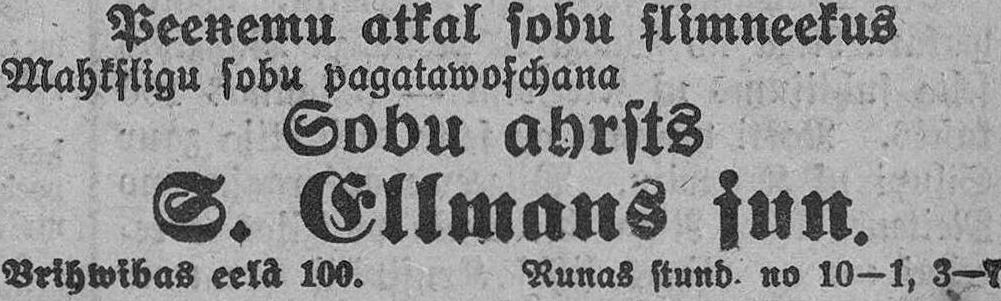 Peenemu atkal sobu slimneekus
Mahksligu sobu pagatawoschana
Sobu ahrsts
S. Ellmans jun.
Brihwibas eelâ 100. Runas stund. no 10—1, 3—7